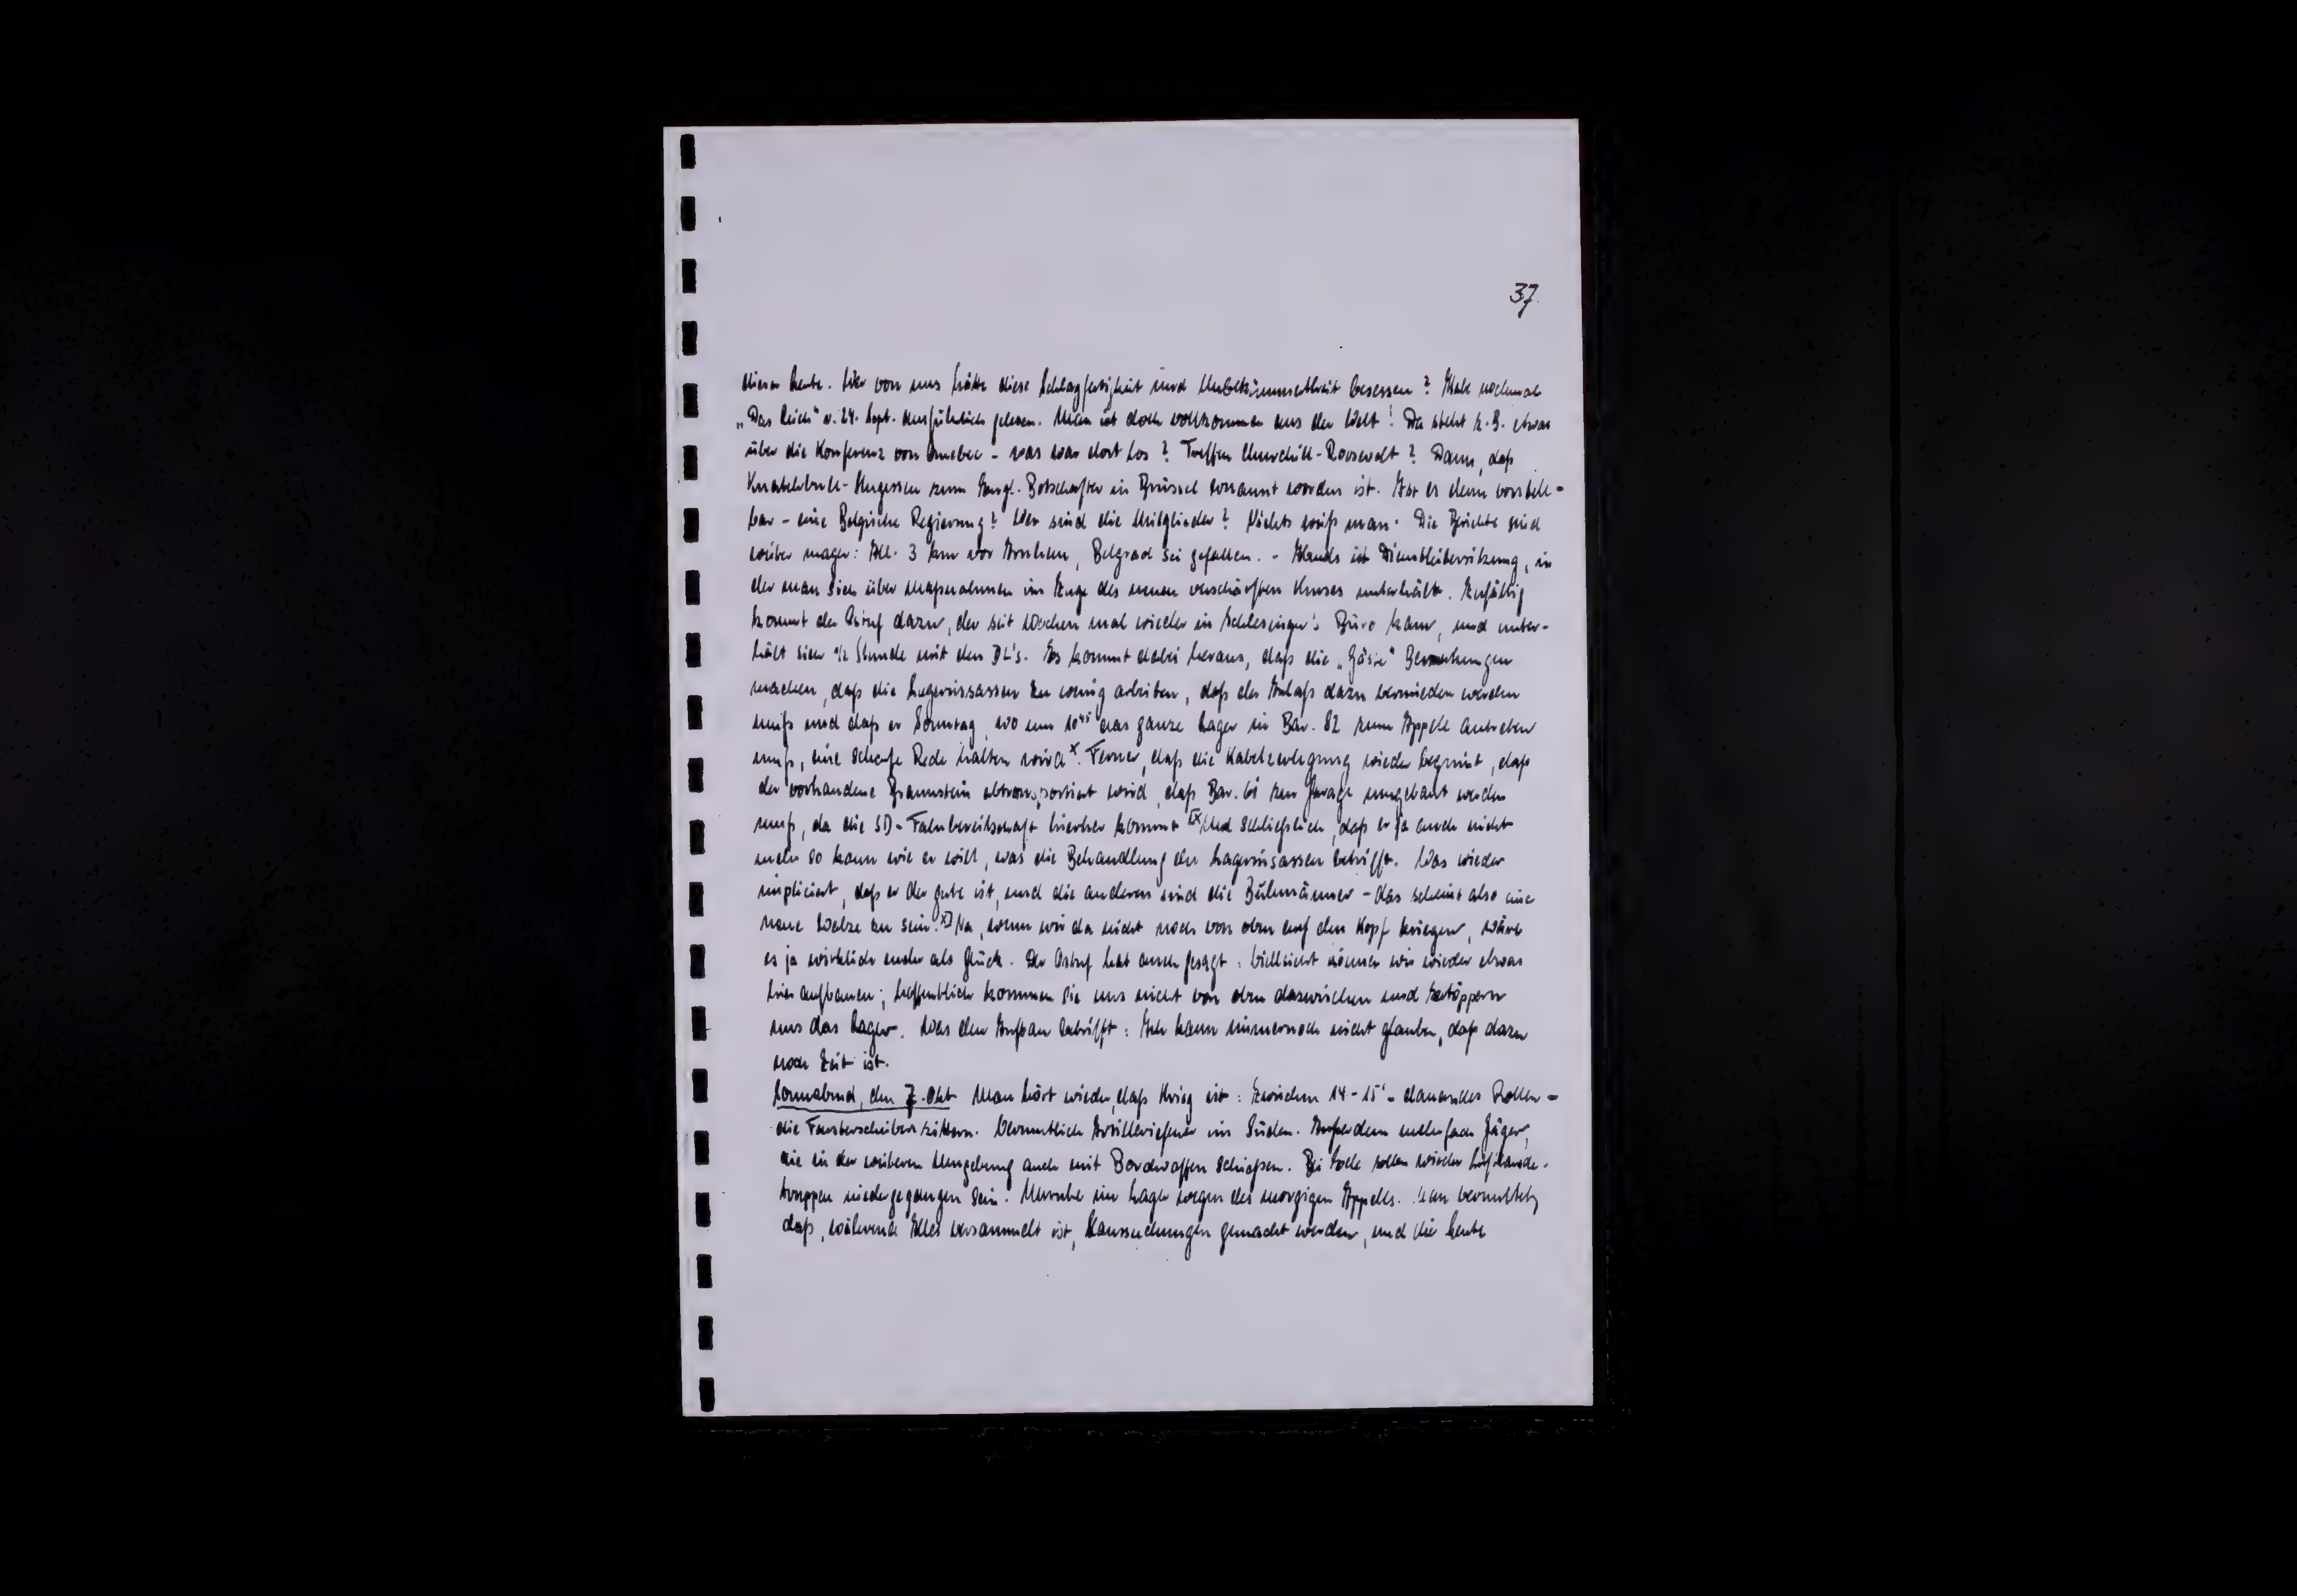 37.
dieser Leute. Wer von uns hätte diese Schlagfertigkeit und Unbekümmertheit besessen? Habe nochmals
„Das Reich" v. 24. Sept. ausführlich gelesen. Man ist doch vollkommen aus der Welt! Da steht z.B. etwas
über die Konferenz von Quebec - was war dort los? Treffen Churchill-Roosevelt? Dann, daß
Knatchbull-Hugessen zum Engl. Botschafter in Brüssel ernannt worden ist. Ist es denn vorstell-
bar - eine Belgische Regierung? Wer sind die Mitglieder? Nichts weiß man. Die Berichte sind
mager: All. 3 km vor Arnhem, Belgrad sei gefallen. - Abends ist Dienstleitersitzung, in
der man sich über Maßnahmen im Zuge des neuen verschärften Kurses unterhält. Zufällig
kommt der Ostuf dazu, der seit Wochen mal wieder in Schlesinger's Büro kam, und unter-
hält sich 1/2 Stunde mit den DL's. Es kommt dabei heraus, daß die „Gäste" Bemerkungen
machen, daß die Lagerinsassen zu wenig arbeiten, daß der Anlaß dazu vermieden werden
muß und daß er Sonntag, wo um 10⁴⁵ das ganze Lager in Bar. 82 zum Appell antreten
muß, eine scharfe Rede halten wird x. Ferner, daß die Kabelzerlegung wieder beginnt, daß
der vorhandene Braunstein abtransportiert wird, daß Bar. 61 zur Garage umgebaut werden
muß, da die SD-Fahrbereitschaft hierher kommt x) Und schließlich, daß er ja auch nicht
mehr so kann wie er will, was die Behandlung der Lagerinsassen betrifft. Was wieder
impliciert, daß er der gute ist, und die anderen sind die Buhmänner - das scheint also eine
neue Walze zu sein. x) Na, wenn wir da nicht noch von oben auf den Kopf kriegen, wäre
es ja wirklich mehr als Glück. Der Ostuf hat auch gesagt: Vielleicht können wir wieder etwas
hier aufbauen; hoffentlich kommen sie uns nicht von oben dazwischen und zertöppern
uns das Lager. Was den Aufbau betrifft: Ich kann immernoch nicht glauben, daß dazu
noch Zeit ist.
Sonnabend, den 7. Okt Man hört wieder, daß Krieg ist: Zwischen 14-15° dauerndes Rollen -
die Fensterscheiben zittern. Vermutlich Artilleriefeuer im Süden. Außerdem mehrfach Jäger,
die in der weiteren Umgebung auch mit Bordwaffen schießen. Bei sollen wieder Luftlande-
truppen niedergegangen sein. Unruhe im Lager wegen des morgigen Appells. Man vermutet,
daß, während Alles versammelt ist, Haussuchungen gemacht werden, und die Leute